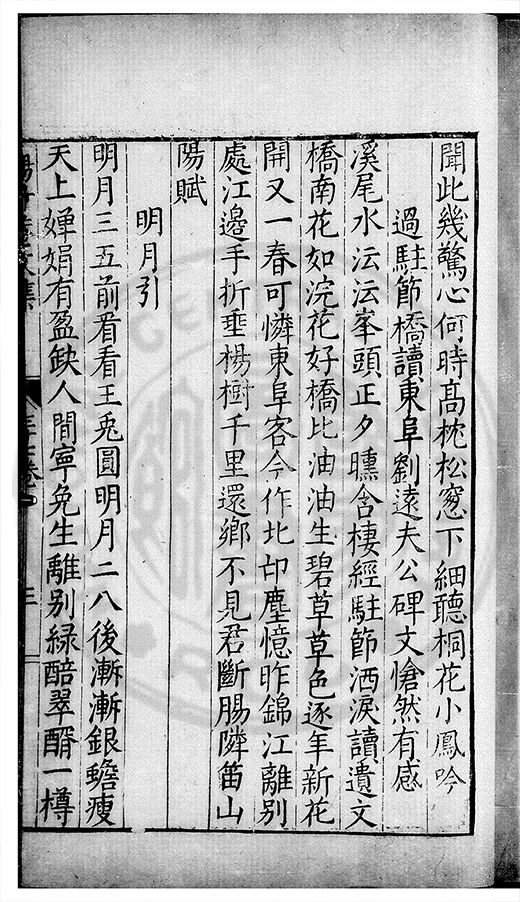 聞此幾驚心何時高枕松窓下細聽桐花小鳳吟
過駐節橋讀東阜劉遠夫公碑文愴然有感
溪尾水沄沄峯頭正夕曛含棲經駐節洒淚讀遺文
橋南花如浣花好橋比油油生碧草草色逐年新花
開又一春可憐東阜客今作北邙塵憶昨錦江離别
處江邊手折垂楊樹千里還鄉不見君斷腸隣笛山
陽賦
明月引
明月三五前看看玉兎圓明月二八後漸漸銀蟾瘦
天上嬋娟有盈缺人間寧免生離别緑醅翠醑一樽